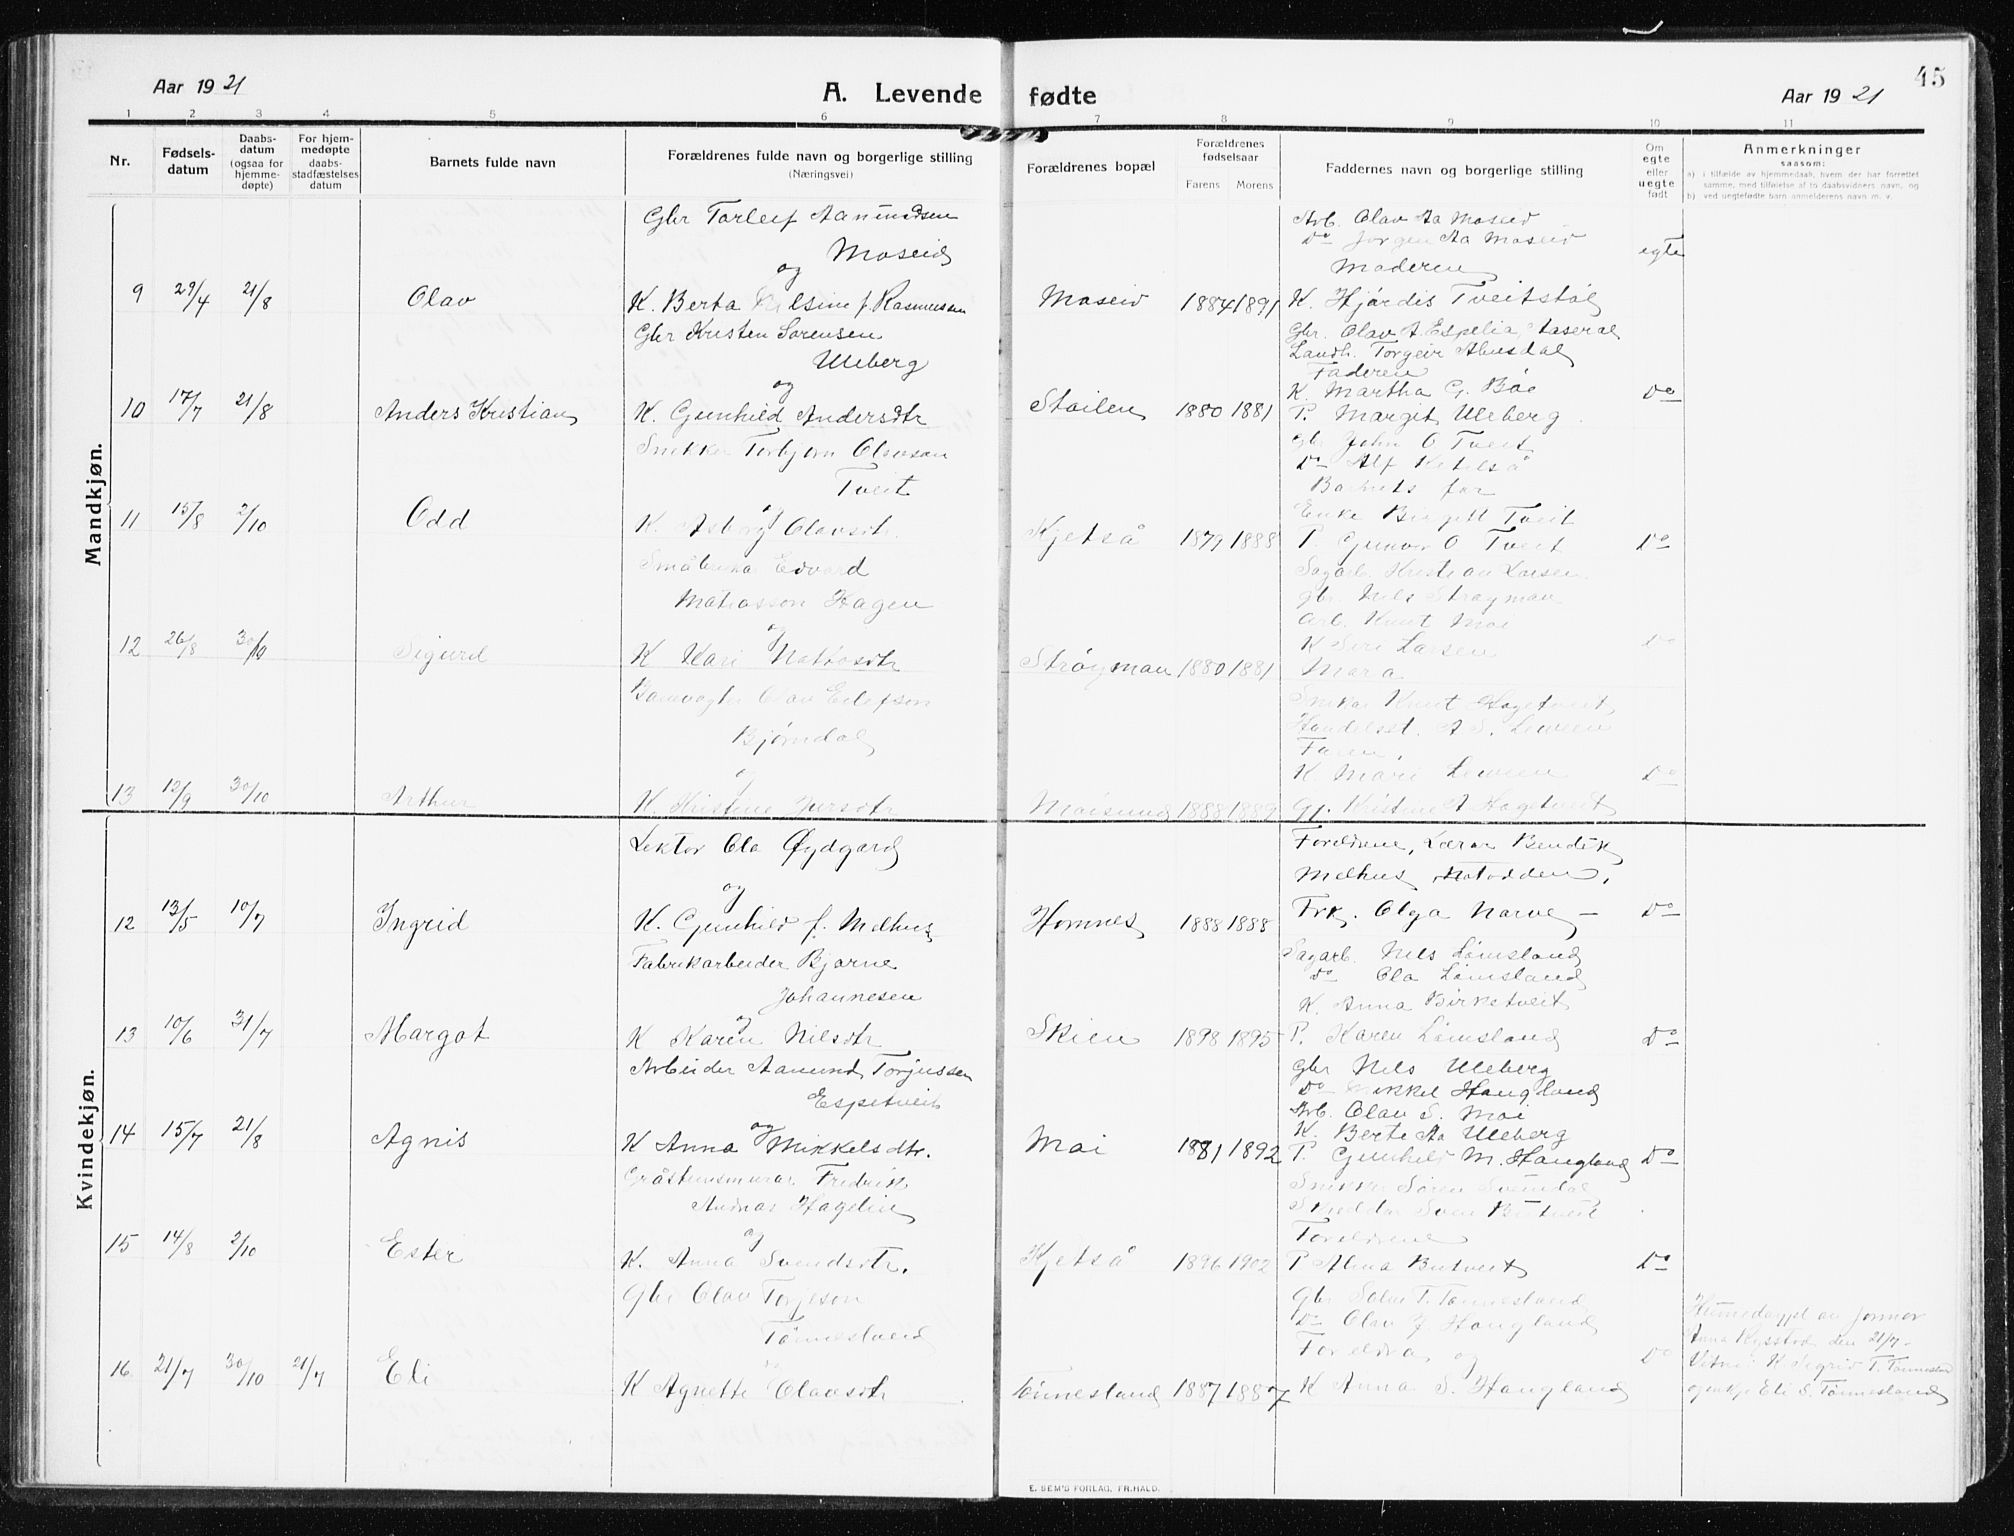 45
Aar 1921
A. Levende fødte
Aar 1921
1 2 3 4 5 6 7 8 9 10 11
Nr.
Fødsels-
datum
Daabs-
datum
(ogsaa for
hjemme-
døpte)
For hjem-
medøpte
daabs-
stadfæstelses
datum
Barnets fulde navn
Forældrenes fulde navn og borgerlige stilling
(Næringsvei)
Forældrenes bopæl
Forældrenes
fødselsaar
Farens Morens
Faddernes navn og borgerlige stilling
Om
egte
eller
uegte
født
Anmerkninger
saasom:
a) i tilfælde av hjemmedaab, hvem der har forrettet
samme, med tilføielse af to daabsvidners navn, og
b) ved uegtefødte barn anmelderens navn m. v.
Mandkjøn.
9 29/4 21/8 Olav
Gbr Torleif Aanundsen
Moseid
og
K. Berta Elsine f. Rasmussen
Moseid 1884 1891
Arb. Olav Aa Moseid
Do Jørgen Aa Moseid
Moderen
K. Hjørdis Tveitstøl
egte
10 17/7 21/8 Anders Kristian
Gbr Kristen Sørensen
Uleberg
og
K. Gunhild Andersdtr
Støilen 1880 1881
Gbr. Olav A. Espelia, Aaseral
Landh. Torgeir Ahusdal
Faderen
K. Martha G. Bøe
P. Margit Uleberg
Do
11 15/8 2/10 Odd
Snekker Torbjørn Olavson
Tveit
og
K. Asborg Olavsdtr.
Kjetså 1879 1888
gbr John O Tveit
Do Alf Ketilså
Barnets far
Enke Birgitt Tveit
P. Gunvor O Tveit
Do
12 26/8 30/9 Sigurd
Småbruka Edvard
Matiasson Hagen
og
K Kari
Strøyman 1880 1881
Sagarb. Kristian Larsen
gbr. Nils Strøyman
arb. Knut Moi
K Siri Larsen
Mora
Do
13 12/9 30/10 Arthur
Banevogter Olav Eilefson
Bjørndal
og
K. Kristine
Moisund 1888 1889
Snikar Knut Hagetveit
Handelsst. A S.
Faren
K. Mari
Gj. Hagetveit
Do
Kvindekjøn.
12 13/5 10/7 Ingrid
Lektor Ola Øydgard
og
K. Gunhild f. Melhus
Hornnes 1888 1888
Foreldrene, Lærar Bendik
Melhus, Notodden,
Frk. Olga Narve –
Do
13 10/6 31/7 Margot
Fabrikarbeider Bjarne
Johannesen
og
K Karen Nilsdtr
Skien 1898 1895
Sagarb. Nils Lømsland
Do Ola Lømsland
K. Anna Birketveit
P. Karen Lømsland
Do
14 15/7 21/8 Agnis
Arbeider Aanund Torjussen
Espetveit
og
K Anna Mikkelsdtr.
Moi 1881 1892
gbr Nils Uleberg
Do Mikkel Haugland
Arb. Olav S. Moi
K. Berte Aa Uleberg
P. Gunhild M. Haugland
Do
15 14/8 2/10 Ester
Gråsteinsmurar Fredrik
Andreas Hagelin
og
K. Anna Svendsdtr.
Kjetså 1896 1902
Snikker Søren Svendal
Skreddar Sven Butveit
Foreldrene
P Alma Butveit
Do
16 21/7 30/10 21/7 Eli
Gbr Olav Torjeson
Tønnesland
og
K Agnette Olavsdtr
Tønnesland 1887 1887
Gbr T. Tønnesland
Do Olav J Haugland
Foreldra og
K Anna S. Haugland
Do
Heimedøypt av jormor
Anna Rysstad den 21/7.
Vitni K Sigrid T. Tønnesland
og enkje Eli S. Tønnesland
E. SEM'S FORLAG, FR.HALD.